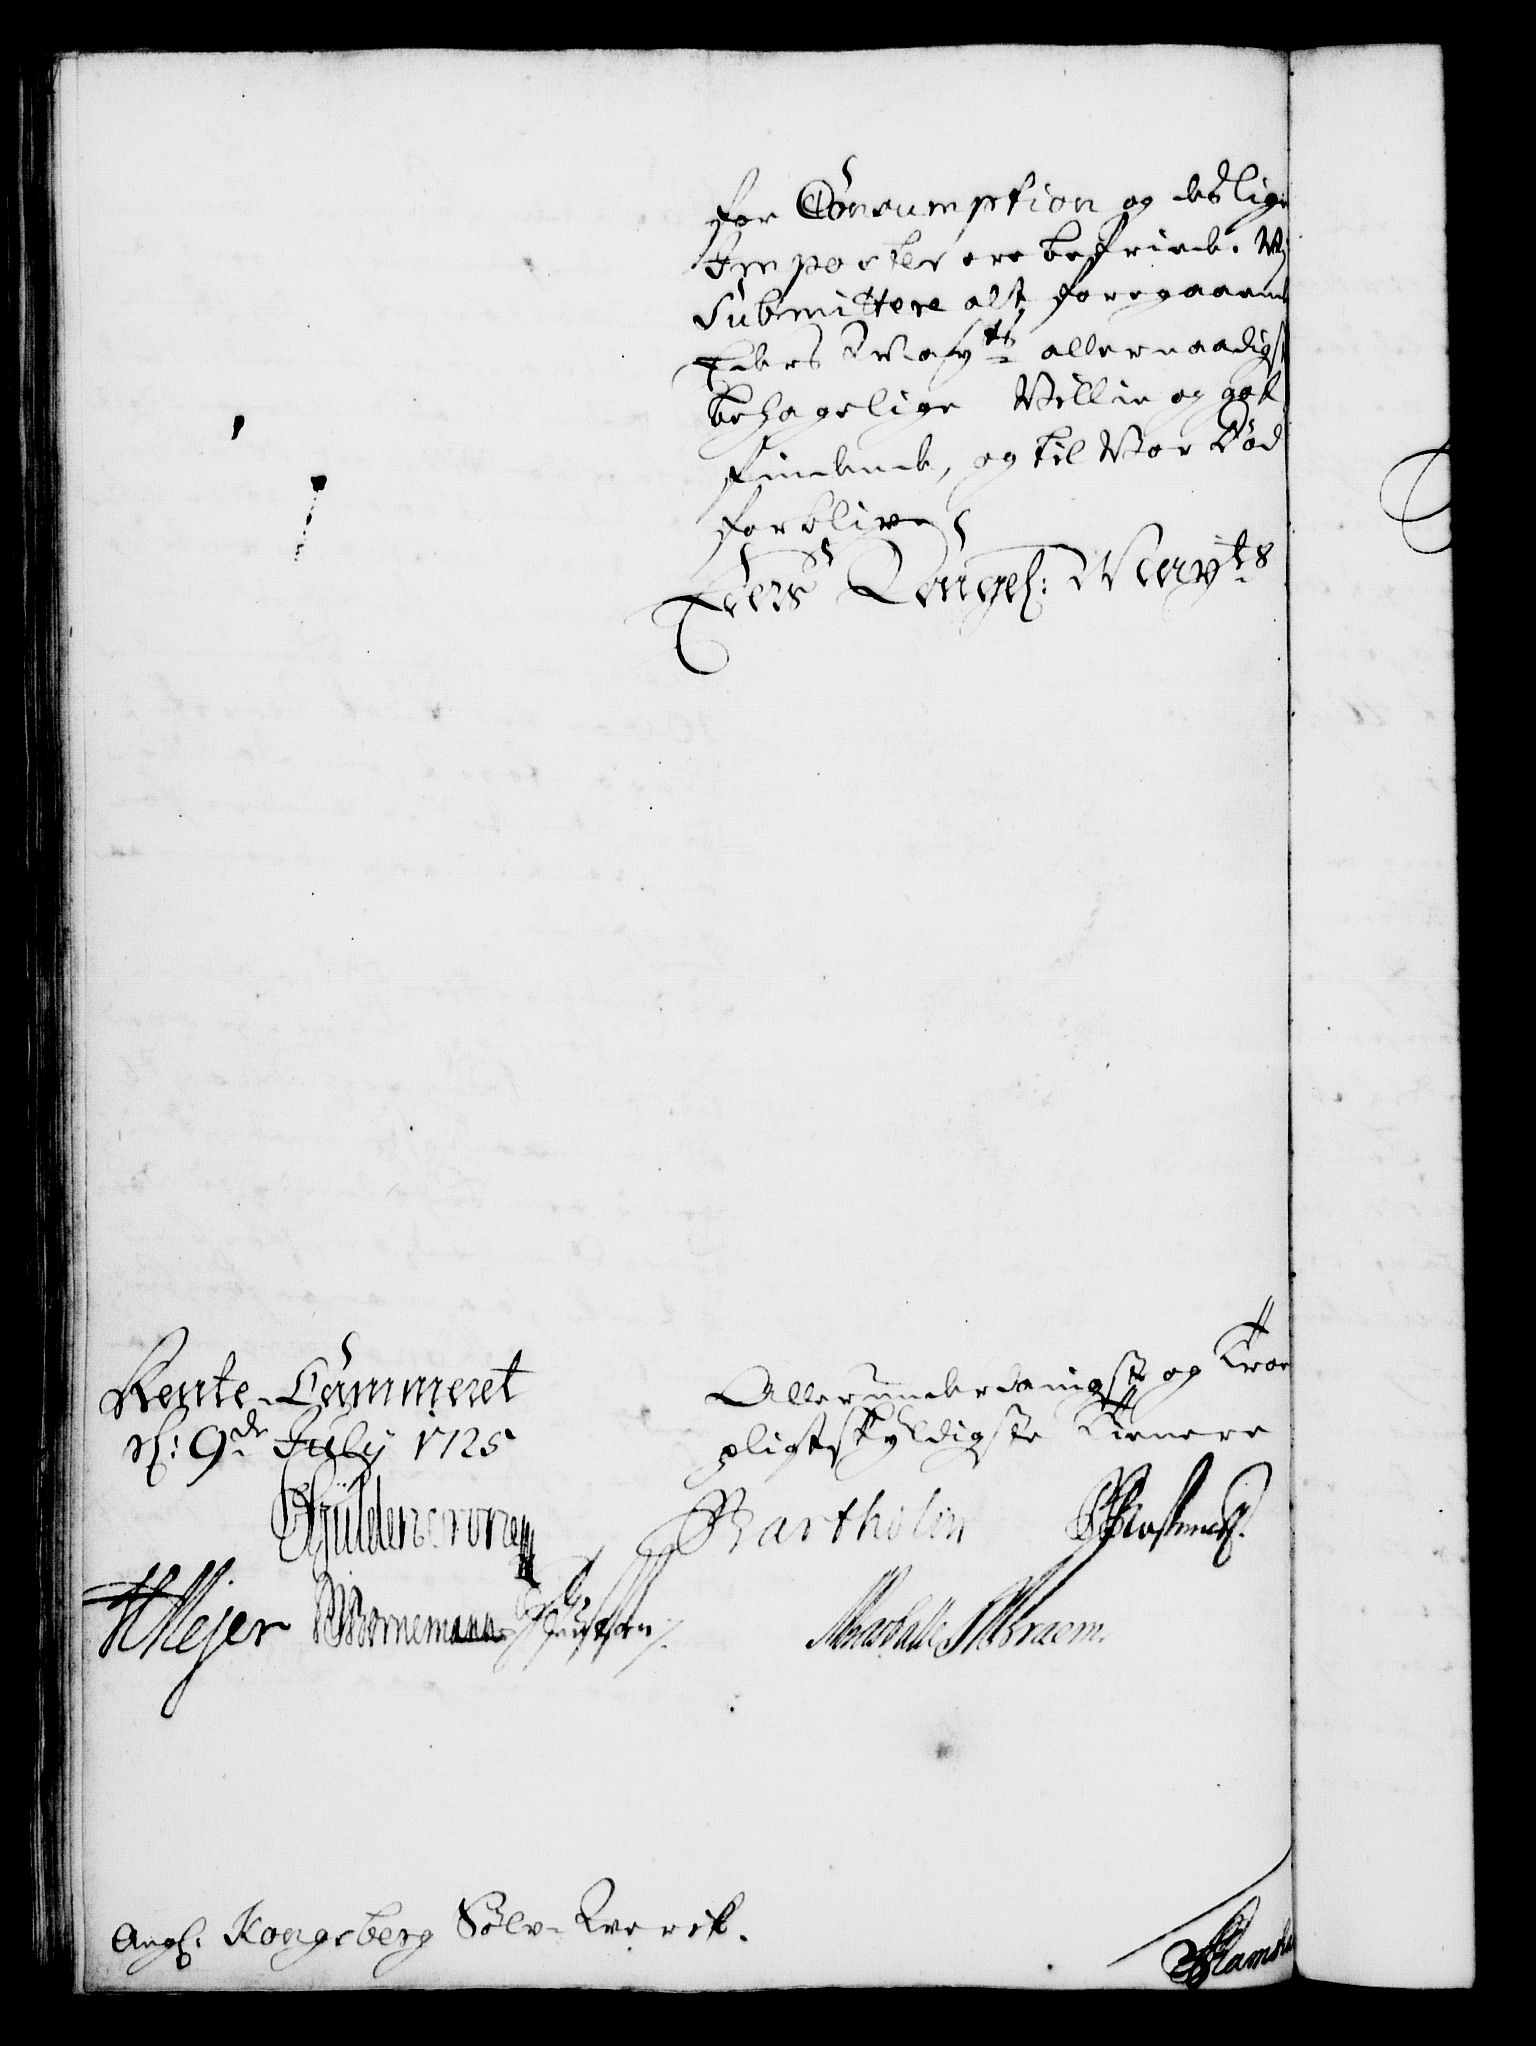 for Consumption og deslige
Imposter ere befriede. Wi
Submittere alt foregaaende
Eders Mayts allernaadigst
behagelige Villie og got
findende, og til Vor Död
forblive
Eders Kongel: Mayts
Rente-Cammeret
d: 9de July 1725
Allerunderdanigste og Troe
pligtskyldigste Tienere
Güldencrone
Bartholin
HMejer
Bornemann
Braem.
Angl: Kongsberg Sölv-Werck.
Ramsha